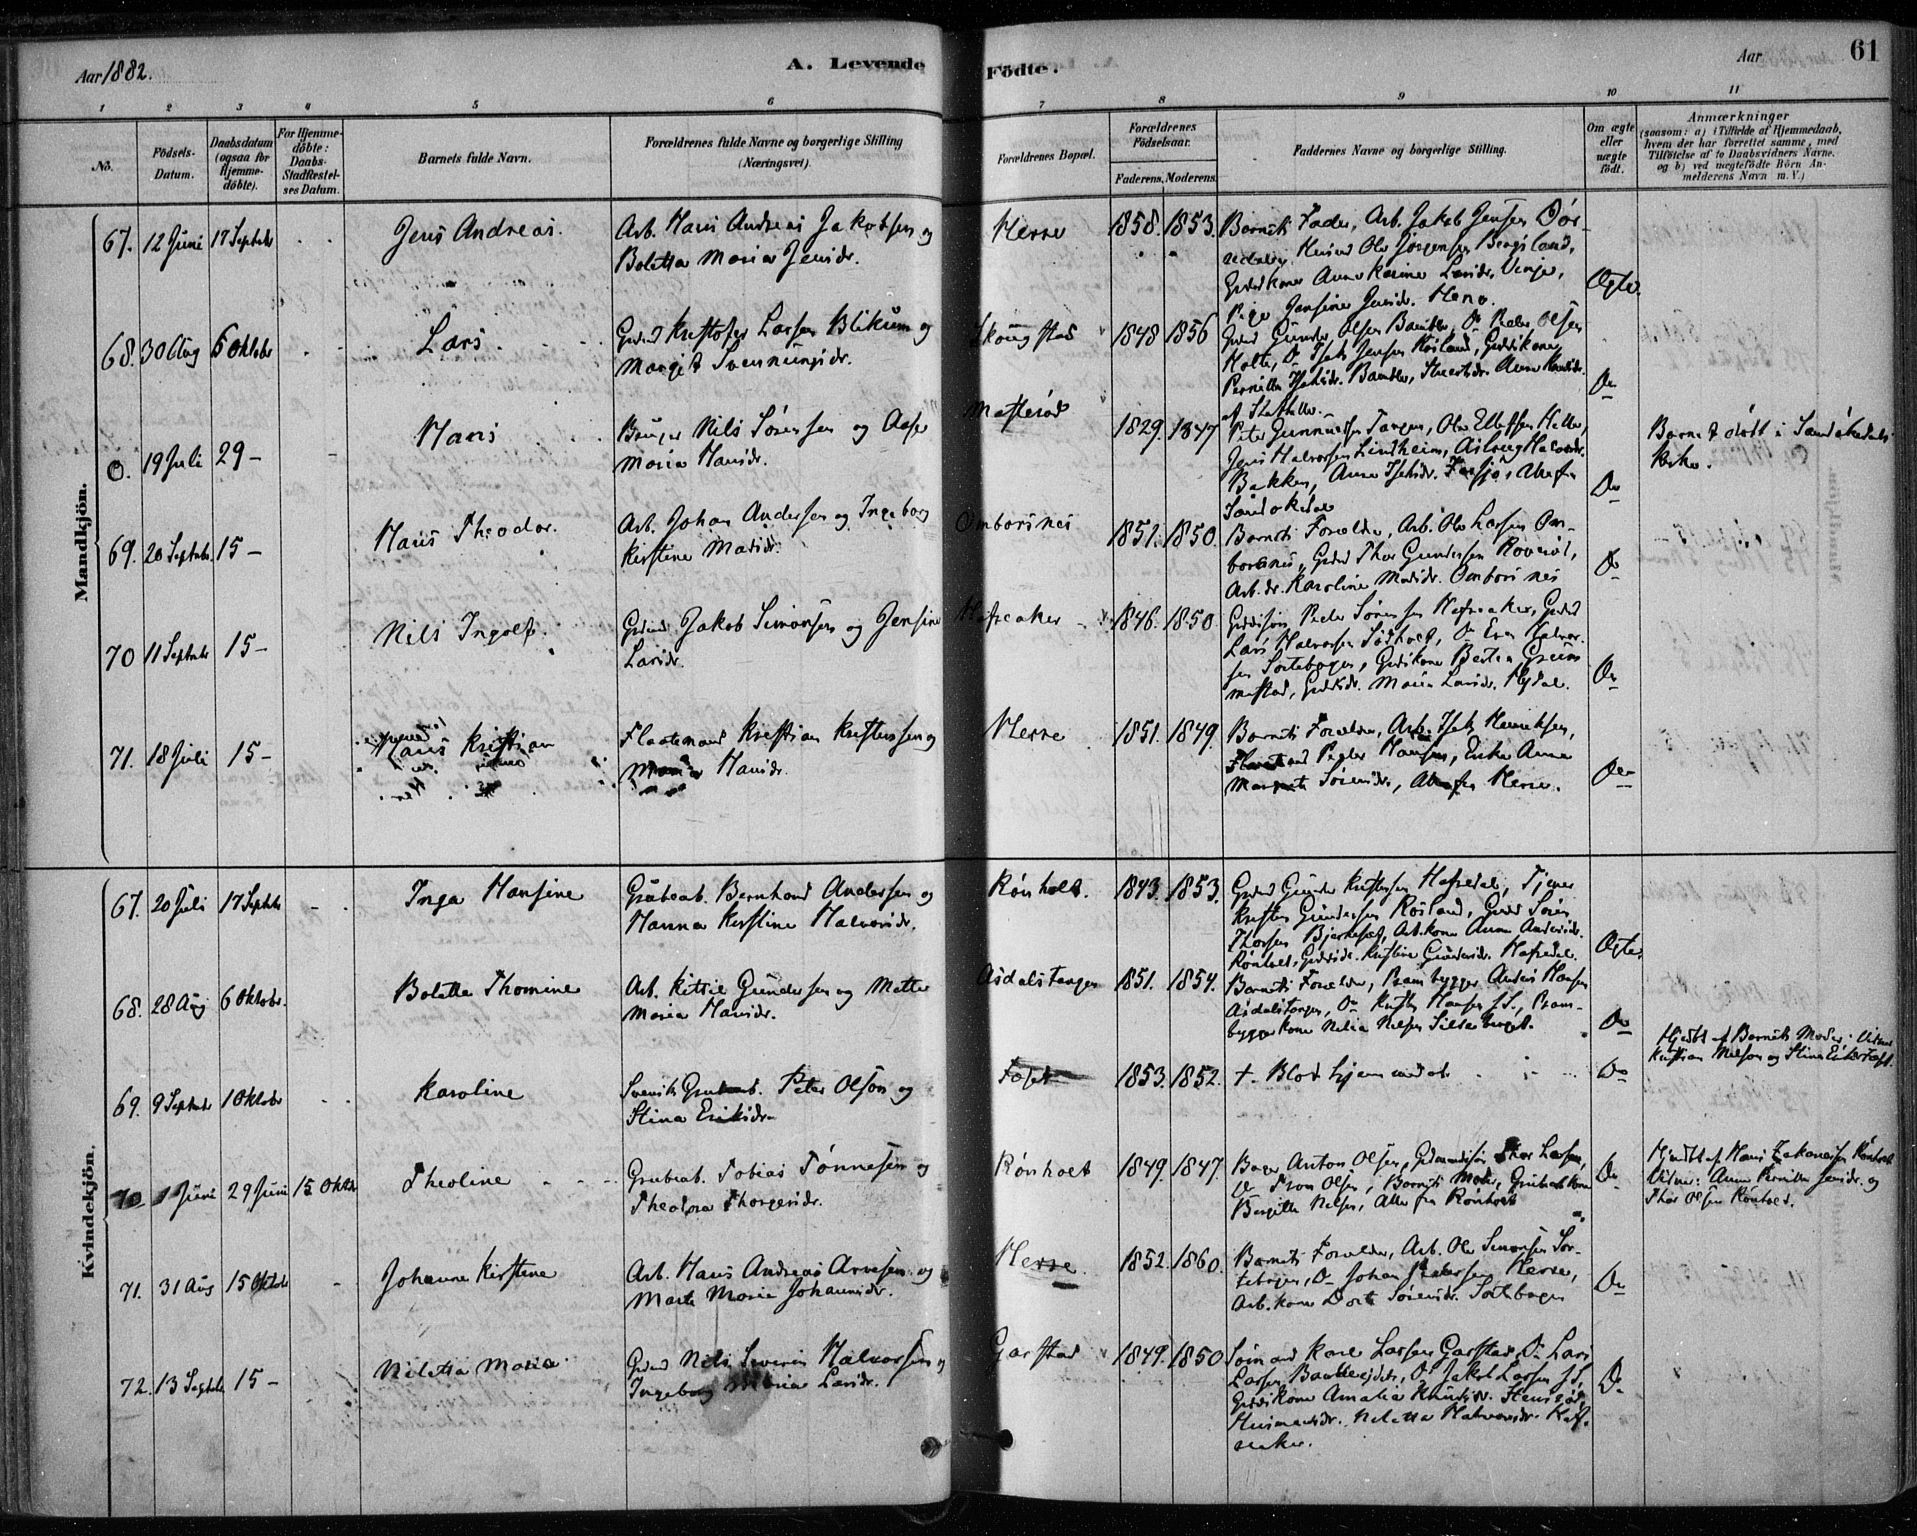 Aar 1882.
A. Levende
Födte.
Aar
61
1 2 3 4 5 6 7 8 9 10 11
No.
Födsels-
Datum.
Daabsdatum
(ogsaa for
Hjemme-
döbte).
For Hjemme-
döbte:
Daabs-
Stadfæstel-
ses Datum.
Barnets fulde Navn.
Forældrenes fulde Navne og borgerlige Stilling
(Næringsvei).
Forældrenes Bopæl.
Forældrenes
Födselsaar.
Faderens. Moderens.
Faddernes Navne og borgerlige Stilling.
Om ægte
eller
uægte
födt.
Anmærkninger
(saasom: a) i Tilfælde af Hjemmedaab,
hvem der har forrettet samme, med
Tilföielse af to Daabsvidners Navne.
og b) ved uægtefödte Börn An-
melderens Navn m. V.)
Mandkjön.
67. 12 Juni 17 Septebr
Jens Andreas.
Arb. Hans Andreas Jakobsen og
Boletta Maria Jensdr.
Herre
1858. 1853.
Barnets Fader, Arb. Jakob Jensen Dör-
Husmd Ole Jörgensen Bergsland,
Grdmdkone Anne Karine Larsdr.
Pige Jensine Jensdr. Heno.
Ægte.
68. 30 Aug 6 Oktobr
Lars
Grdmd Kristofer Larsen Blekum og
Margit Svennungsdr.
Skougstad
1848 1856
Grdmd Gunder Olsen Bamble, Do Peder Olsen
Holte, Do Isak Jensen Rösland, Grdmdkone
Pernille Isaksdr. Bamble,
Do
0. 19 Juli 29 –
Hans
Nils Sörensen og Aase
Maria Hansdr.
1829. 1847
Peter Gunnersen Tangen, Ole Ellefsen Helle,
Jens Halvorsen Lindheim, Aslaug Halvorsdr.
Bakken, Anne
Sandökedal
Do
Barnet döbt i Sandökedals
Kirke.
69. 20 Septebr 15 –
Hans Theodor.
Arb. Johan Andersen og Ingeborg
Kirstine Madsdr.
Omborsnes
1851. 1850.
Barnets Forældre, Arb. Ole Larsen Om-
borsnes, Grdmd Thor Gundersen
Arb. dr. Karoline Madsdr. Omborsnes
Do
70 11 Septebr 15 –
Nils Ingolf.
Grdmd Jakob Simonsen og Jensine
Larsdr.
Hafsaker
1846. 1850.
Grdmdssön Peder Sörensen Hafsaker, Grdmd
Lars Halvorsen Do Even Halvor-
sen Sortebogen, Grdmdkone Berte Grum-
mestad, Grdmdsdr. Maria Larsdr.
Do
71. 18 Juli 15 –
Hans Kristian
Flaatemand Kristian Kristensen og
Maria Hansdr.
Herre
1851. 1849.
Barnets Forældre, Arb. Isak Henriksen,
Peder Hansen, Enke Anne
Margrete Sörensdr, Alle fra Herre.
Do
Kvindekjön.
67. 20 Juli 17 Septebr
Inga Hansine
Grubearb. Bernhard Andersen og
Hanna Kirstine Halvorsdr.
Rönholt.
1843. 1853.
Grdmd Gunder Kristensen Hafredal, Tjener
Kristen Gundersen Rösland, Grdmd Sören
Thorsen Bjerkeset, Arb.kone Anne Andersdr.
Rönholt, Grdmdsdr. Kirstine Gundersdr. Hafredal
Ægte.
68. 28 Aug 6 Oktobr.
Bolette Thomine
Arb. Kitsil Gundersen og Mette
Maria Hansdr.
Asdalstangen
1851. 1854.
Barnets Forældre, Prambygger Anders Hansen
Asdalstangen, Do Kristen Hansen ss., Pram-
byggerkone Nilia Nilsen
Do
69. 9 Septebr 1 Oktobr
Karoline
Svensk Grubearb. Peter Olson og
Stina Eriksdr.
Foset
1853. 1852.
+ Blot hjemmedöbt
Do
Hjdöbt af Barnets Moder. Vidner
Kristian Nilson og Stina
70 1 Juni 29 Juni 15 Oktbr
Theoline
Grubearb. Tobias Tönnesen og
Theodora Thorgersdr.
Rönholt
1849. 1847.
Bager Anton Olsen, Thor Larsen,
Do Tron Olsen, Barnets Moder, Grubearbkone
Birgitte Nilsen, Alle fra Rönholt
Do
Hjdöbt af Hans Zakariassen Rönholt
Vidner: Anne Pernille Jensdr. og
Thor Olsen Rönholt.
71. 31 Aug 15 Oktobr
Johanne Kirstine
Arb. Hans Andreas Arnesen og
Marte Maria Johannesdr.
Herre.
1852. 1860.
Barnets Forældre, Arb. Ole Simonsen Sor-
tebogen, Do Johan Pedersen Herre,
Arb.kone Dorte Sörensdr. Sortebogen
Do
72. 13 Septebr 15 –
Niletta Maria
Grdmd Nils Severin Halvorsen og
Ingeborg Maria Larsdr.
Garstad
1849. 1850
Sömand Karl Larsen Garstad, Do Lars
Larsen Do Jakob Larsen ss,
Grdmdkone Amalia Knudsdr.
Husmandsdr. Niletta Halvorsdr. Haf-
saker.
Do